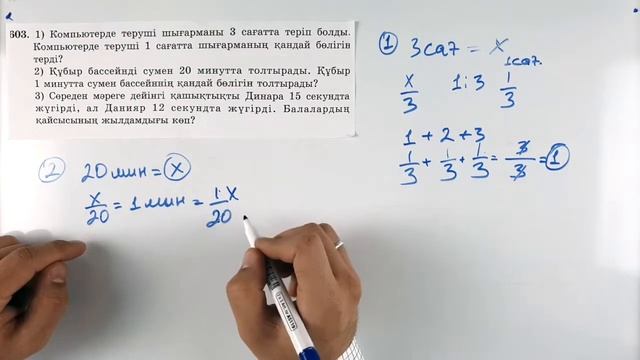 603. 1) Компьютерде теруші шығарманы 3 сағатта теріп болды.
Компьютерде теруші 1 сағатта шығарманың қандай бөлігін
терді?
2) Құбыр бассейнді сумен 20 минутта толтырады. Құбыр
1 минутта сумен бассейннің қандай бөлігін толтырады?
3) Сөреден мәреге дейінгі қашықтықты Динара 15 секундта
жүгірді, ал Данияр 12 секундта жүгірді. Балалардың
қайсысының жылдамдығы көп?
1 3 саг = x
1 саг.
x/3 1:3 1/3
1 + 2 + 3
1/3 + 1/3 + 1/3 = 3/3 = 1
2 20 мин = x
x/20 = 1 мин = 1x/20